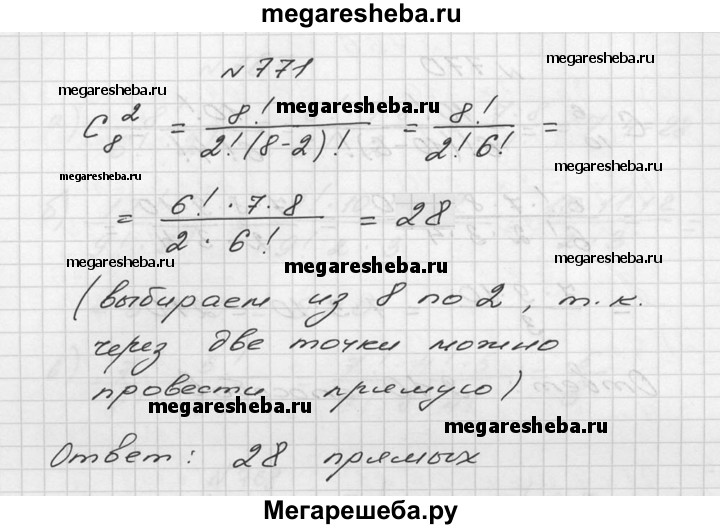 megaresheba.ru
№ 771
megaresheba.ru
megaresheba.ru
megaresheba.ru
C₈² = 8! / 2!(8-2)! = 8! / 2!6! =
megaresheba.ru
megaresheba.ru
= 6!·7·8 / 2·6! = 28
megaresheba.ru
megaresheba.ru
megaresheba.ru
(выбираем из 8 по 2, т.к.
через две точки можно
провести прямую)
megaresheba.ru
megaresheba.ru
Ответ: 28 прямых
Мегарешеба.ру